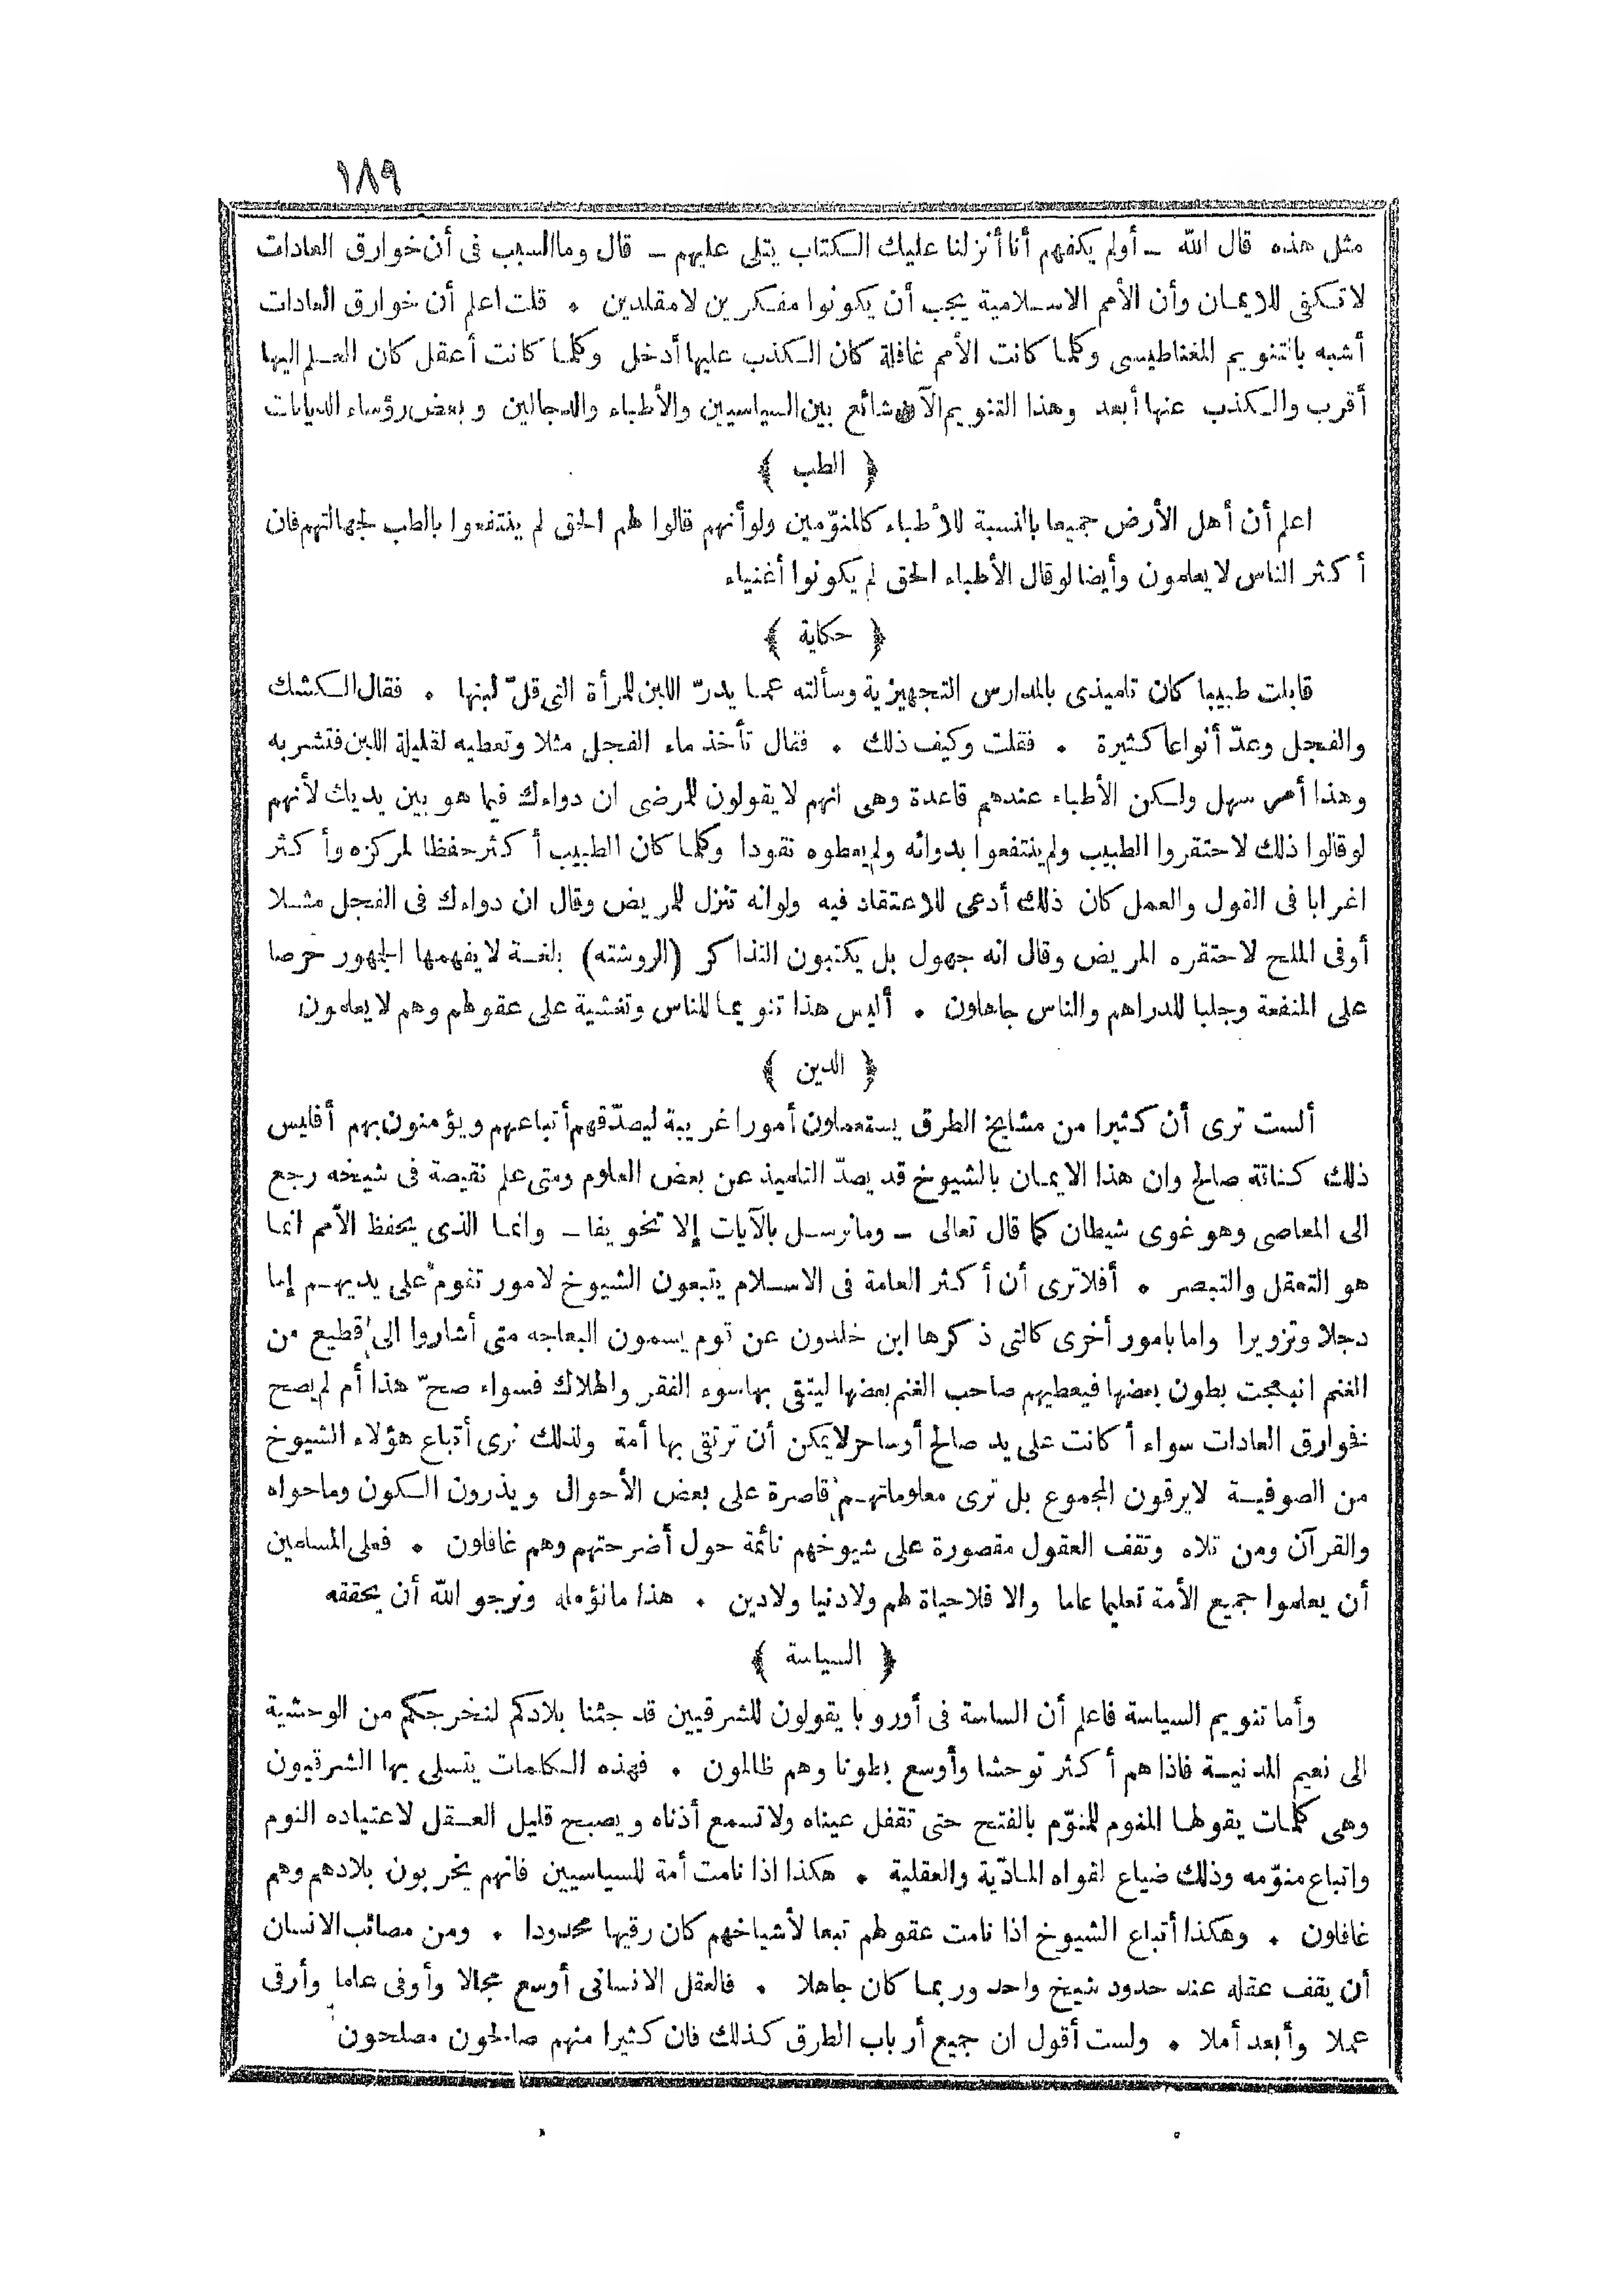 ١٨٩
مثل هذه قال الله ــ أولم يكفهم أنا أنزلنا عليك الكتاب يتلى عليهم ــ قال وما السبب فى أن خوارق العادات
لا تكفى للايمان وأن الأمم الاسلامية يجب أن يكونوا مفكرين لا مقلدين ٠ قلت اعلم أن خوارق العادات
أشبه بالتنويم المغناطيسى وكلما كانت الأمم غافلة كان الكذب عليها أدخل وكلما كانت أعقل كان العلم اليها
أقرب والكذب عنها أبعد وهذا التنويم الآن شائع بين السياسيين والأطباء والدجالين وبعض رؤساء الديانات
﴿ الطب ﴾
اعلم أن أهل الأرض جميعا بالنسبة للأطباء كالمنوّمين ولو أنهم قالوا لهم الحق لم ينتفعوا بالطب لجهالتهم فان
أكثر الناس لا يعلمون وأيضا لو قال الأطباء الحق لم يكونوا أغنياء
﴿ حكاية ﴾
قابلت طبيبا كان تلميذى بالمدارس التجهيزية وسألته عما يدرّ اللبن للمرأة التى قلّ لبنها ٠ فقال الكشك
والفجل وعدّ أنواعا كثيرة ٠ فقلت وكيف ذلك ٠ فقال تأخذ ماء الفجل مثلا وتعطيه لقليلة اللبن فتشربه
وهذا أمر سهل ولكن الأطباء عندهم قاعدة وهى انهم لا يقولون للمرضى ان دواءك فيما هو بين يديك لأنهم
لو قالوا ذلك لاحتقروا الطبيب ولم ينتفعوا بدوائه ولم يعطوه نقودا وكلما كان الطبيب أكثر حفظا لمركزه وأكثر
اغرابا فى القول والعمل كان ذلك أدعى للاعتقاد فيه ولو انه تنزل للمريض وقال ان دواءك فى الفجل مثلا
أو فى الملح لاحتقره المريض وقال انه جهول بل يكتبون التذاكر (الروشته) بلغة لا يفهمها الجهور حرصا
على المنفعة وجلبا للدراهم والناس جاهلون ٠ أليس هذا تنويما للناس وتغشية على عقولهم وهم لا يعلمون
﴿ الدين ﴾
ألست ترى أن كثيرا من مشايخ الطرق يستعملون أمورا غريبة ليصدّقهم أتباعهم ويؤمنون بهم أفليس
ذلك كناقة صالح وان هذا الايمان بالشيوخ قد يصدّ التلميذ عن بعض العلوم ومتى علم نقيصة فى شيخه رجع
الى المعاصى وهو غوى شيطان كما قال تعالى ــ وما نرسل بالآيات إلا تخويفا ــ وانما الذى يحفظ الأمم انما
هو التعقل والتبصر ٠ أفلا ترى أن أكثر العامة فى الاسلام يتبعون الشيوخ لامور تقوم على يديهم إما
دجلا وتزويرا واما بامور أخرى كالتى ذكرها ابن خلدون عن قوم يسمون البعاجه متى أشاروا الى قطيع من
الغنم انبعجت بطون بعضها فيعطيهم صاحب الغنم بعضها ليتقى بها سوء الفقر والهلاك فسواء صحّ هذا أم لم يصح
فخوارق العادات سواء أكانت على يد صالح أو ساحر لا يمكن أن ترتقى بها أمة ولذلك نرى أتباع هؤلاء الشيوخ
من الصوفية لا يرقون المجموع بل ترى معلوماتهم قاصرة على بعض الأحوال ويذرون الكون وما حواه
والقرآن ومن تلاه وتقف العقول مقصورة على شيوخهم نائمة حول أضرحتهم وهم غافلون ٠ فعلى المسلمين
أن يعلموا جميع الأمة تعليما عاما والا فلا حياة لهم ولا دنيا ولا دين ٠ هذا ما نؤمله ونرجو الله أن يحققه
﴿ السياسة ﴾
وأما تنويم السياسة فاعلم أن الساسة فى أوروبا يقولون للشرقيين قد جئنا بلادكم لنخرجكم من الوحشية
الى نعيم المدنية فاذا هم أكثر توحشا وأوسع بطونا وهم ظالمون ٠ فهذه الكلمات يتسلى بها الشرقيون
وهى كلمات يقولها المنوم للمنوّم بالفتح حتى تقفل عيناه ولا تسمع أذناه ويصبح قليل العقل لاعتياده النوم
واتباع منوّمه وذلك ضياع لقواه المادّية والعقلية ٠ هكذا اذا نامت أمة للسياسيين فانهم يخربون بلادهم وهم
غافلون ٠ وهكذا أتباع الشيوخ اذا نامت عقولهم تبعا لأشياخهم كان رقيها محدودا ٠ ومن مصائب الانسان
أن يقف عقله عند حدود شيخ واحد وربما كان جاهلا ٠ فالعقل الانسانى أوسع مجالا وأوفى علما وأرقى
عملا وأبعد أملا ٠ ولست أقول ان جميع أرباب الطرق كذلك فان كثيرا منهم صالحون مصلحون